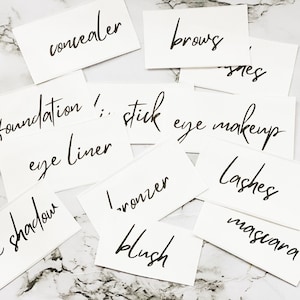 concealer
brows
foundation
stick
eye makeup
eye liner
lashes
bronzer
shadow
mascara
blush